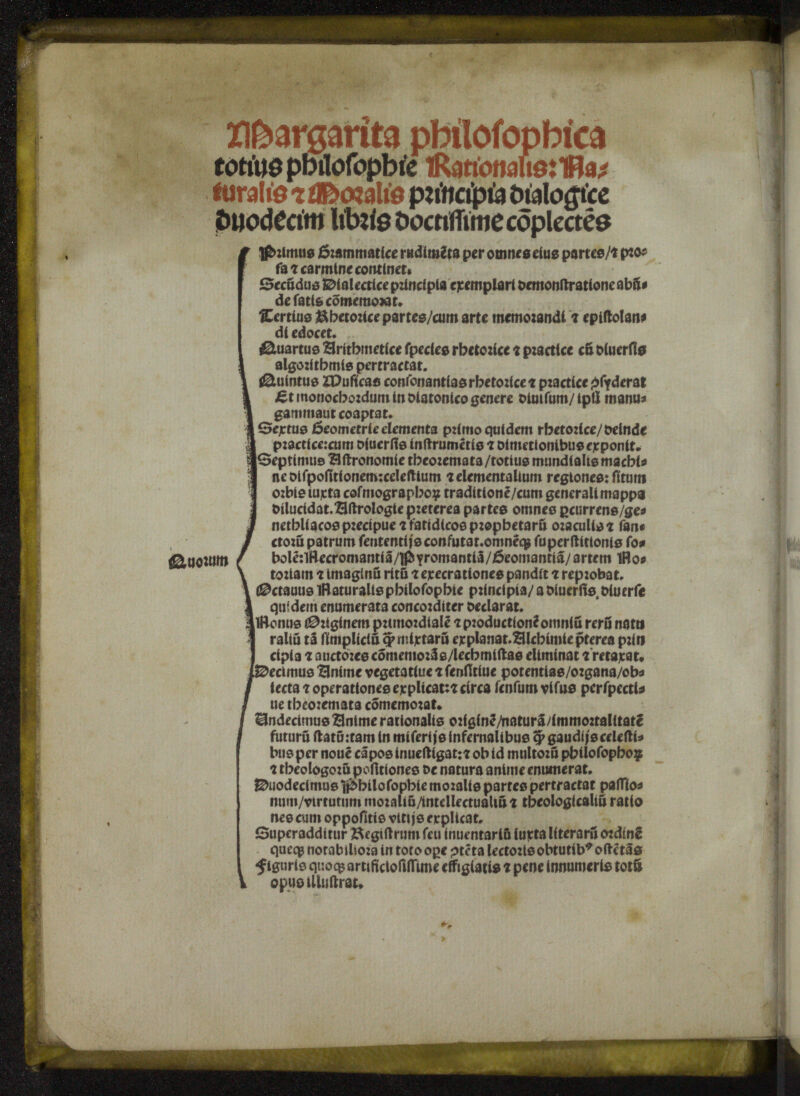 Margarita philosophica
totius philosophie Rationalis: Na⸗
turalis ⁊ Moralis principia dialogice
duodecim libris doctissime cōplectēs
Primus Grammatice rudimēta per omnes eius partes/⁊ pro⸗
sa ⁊ carmine continet.
Secūdus Dialectice principia exemplari demonstratione abū⸗
de satis cōmemorat.
Tertius Rhetorice partes/cum arte memorandi ⁊ epistolan⸗
di edocet.
Quartus Arithmetice species rhetorice ⁊ practice cū diuersis
algorithmis pertractat.
Quintus Musicas consonantias rhetorice ⁊ practice ꝯsyderat
Et monochordum in diatonico genere diuisum/ ipsi manu⸗
gammaut coaptat.
Sextus Geometrie elementa primo quidem rhetorice/deinde
practice:cum diuersis instrumētis ⁊ dimetionibus exponit.
Septimus Astronomie theoremata/totius mundialis machi⸗
ne dispositionem:celestium ⁊ elementalium regiones: situm
orbis iuxta cosmographoꝝ traditionē/cum generali mappa
dilucidat. Astrologie preterea partes omnes ꝑcurrens/ge⸗
nethliacos precipue ⁊ fatidicos prophetarū oracula ⁊ san⸗
ctorū patrum sententijs confutat. omnēqꝫ superstitionis so⸗
bolē: Necromantiā/Pyromantiā/Geomantiā/artem No⸗
toriam ⁊ imaginū ritū ⁊ execrationes pandit ⁊ reprobat.
Quorum
Octauus Naturalis philosophie principia/ a diuersis diuerse
quidem enumerata concorditer declarat.
Nonus Originem primordialē ⁊ productionē omniū rerū natu
raliū tā simpliciū ꝙ mixtarū explanat. Alchimie p̄terea prin
cipia ⁊ auctores cōmemorās/lechmistas eliminat ⁊ retaxat.
Decimus Anime vegetatiue ⁊ sensitiue potentias/organa/ob⸗
iecta ⁊ operationes explicat:⁊ circa sensum visus perspecti⸗
ue theoremata cōmemorat.
Undecimus Anime rationalis originē/naturā/immortalitatē
futurū statū:tam in miserijs infernalibus ꝙ gaudijs celesti⸗
bus per nouē cāpos inuestigat:⁊ ob id multorū philosophoꝝ
⁊ theologorū positiones de natura anime enumerat.
Duodecimus Philosophie moralis partes pertractat passio⸗
num/virtutum moraliū/intellectualiū ⁊ theologicaliū ratio
nes cum oppositis vitijs explicat.
Superadditur Registrum seu inuentariū iuxta literarū ordinē
queqꝫ notabiliora in toto ope ꝯtēta lectoris obtutibꝰ ostētās
Figuris quoqꝫ artificiosissime effigiatis ⁊ pene innumeris totū
opus illustrat.